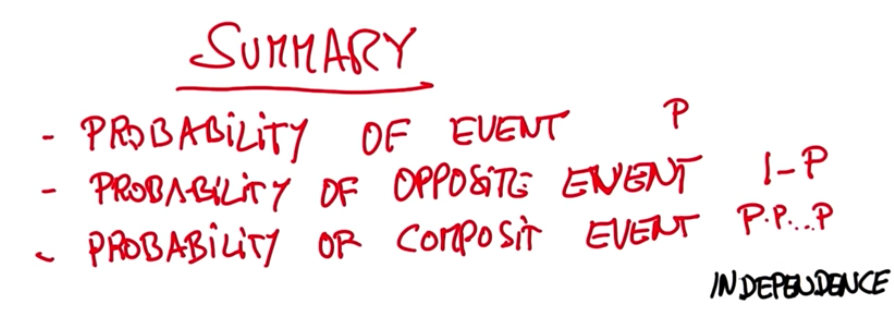 SUMMARY
- PROBABILITY OF EVENT P
- PROBABILITY OF OPPOSITE EVENT 1-P
- PROBABILITY OF COMPOSIT EVENT P·P...P
INDEPENDENCE